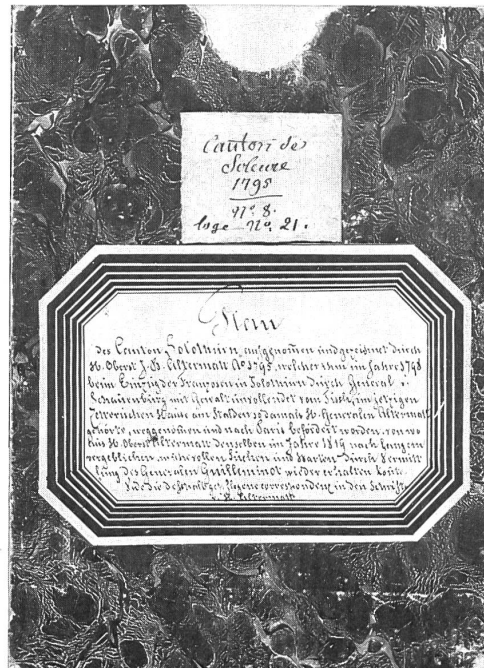 Canton de
Soleure
1795
Nº. 8.
loge Nº. 21.
Plan
des Canton Solothurn, aufgenom̅en und gezeichnet durch
H. Oberst J. B. Altermatt Aº 1795, welcher ihm im Jahre 1798
beim Einzug der Franzosen in Solothurn durch General v.
Schauenburg mit Gewalt unvollendet vom Tisch, im jetzigen
Hause am Stalden so damals H. Generalen Altermatt
gehörte, weggenom̅en und nach Paris befördert worden, von wo
ihn H. Oberst Altermatt denselben im Jahre 1819 nach langem
vergeblichen, mühevollen Suchen und Warten durch Vermitt
lung des Generalen Guilleminot wieder erhalten konte.
Siehe die deshalb gepflogene correspondenz in den Schrift.
v. H. Altermatt